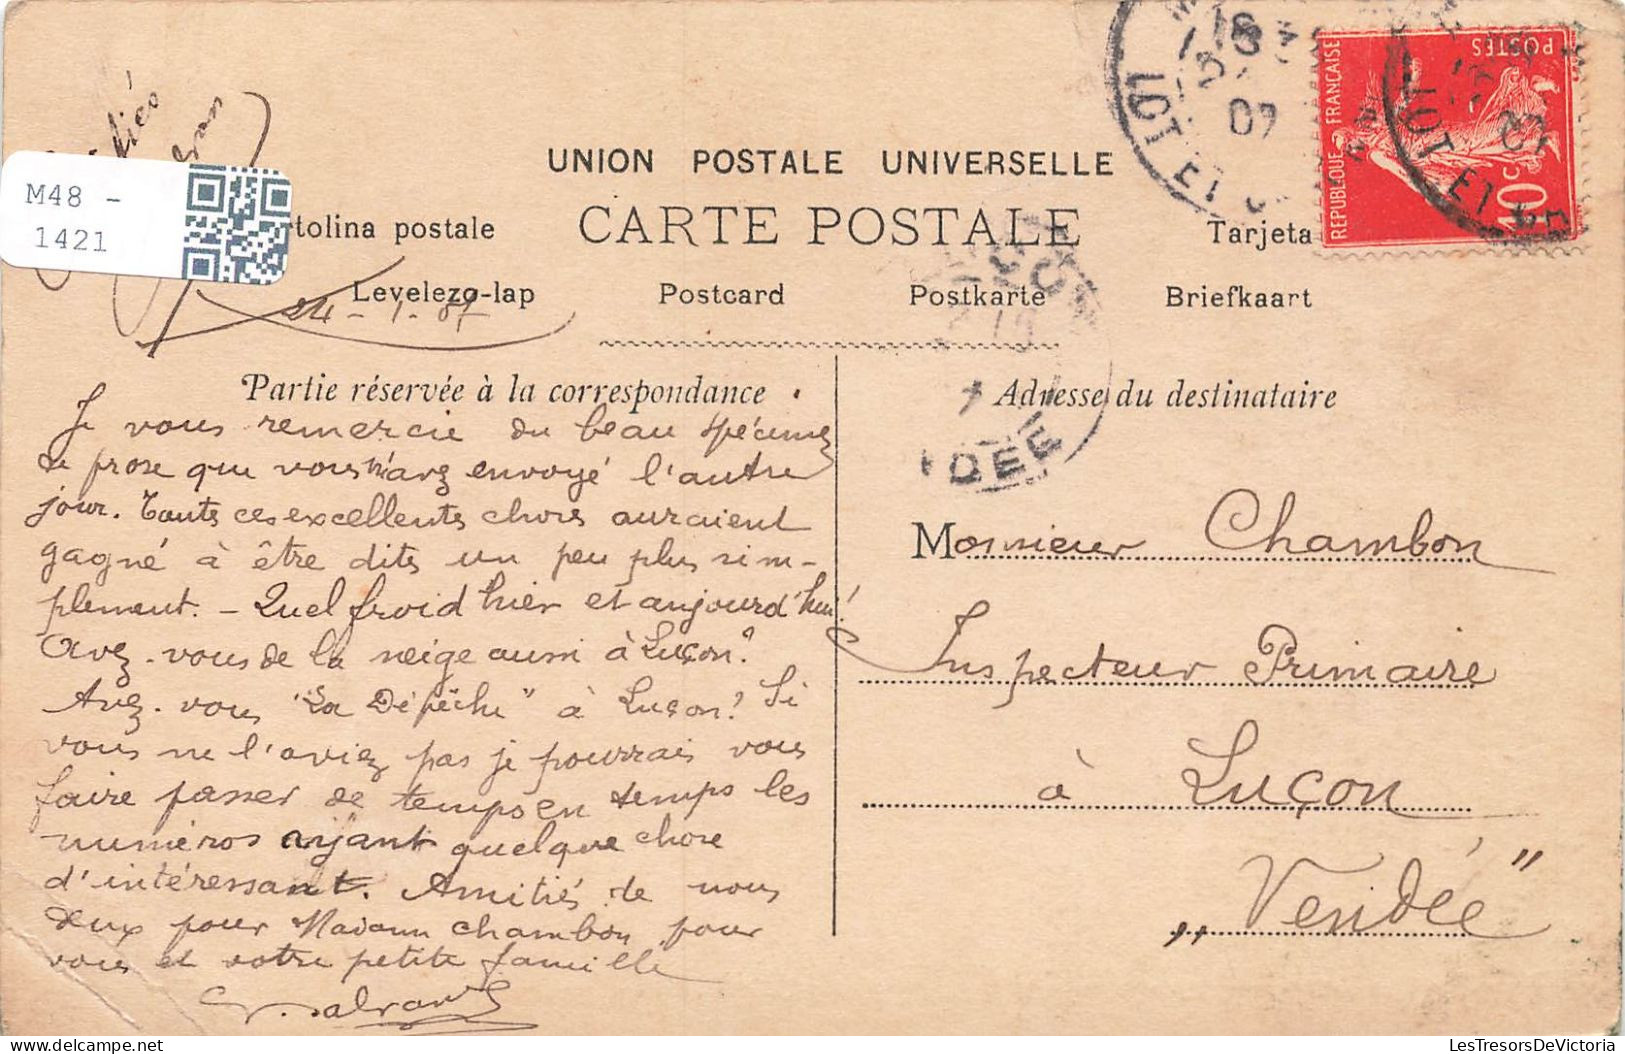 M48 -
1421
UNION POSTALE UNIVERSELLE
CARTE POSTALE
tolina postale
Tarjeta
Levelezo-lap
Postcard
Postkarte
Briefkaart
24-1-07
REPUBLIQUE FRANÇAISE
POSTES
10 c
LOT ET
07
LOT ET
07
DEE
Partie réservée à la correspondance
Adresse du destinataire
Je vous remercie du beau spécimen
de prose que vous m'avez envoyé l'autre
jour. Toutes ces excellentes choses auraient
gagné à être dites un peu plus sim-
plement. - Quel froid hier et aujourd'hui!
Avez-vous de la neige aussi à Luçon?
Avez-vous "La Dépêche" à Luçon? Si
vous ne l'aviez pas je pourrais vous
faire passer de temps en temps les
numéros ayant quelque chose
d'intéressant. Amitiés de nous
deux pour Madame Chambon pour
vous et votre petite famille
Monsieur Chambon
Inspecteur Primaire
à Luçon
"Vendée"
LesTresorsDeVictoria
LesTresorsDeVictoria.com